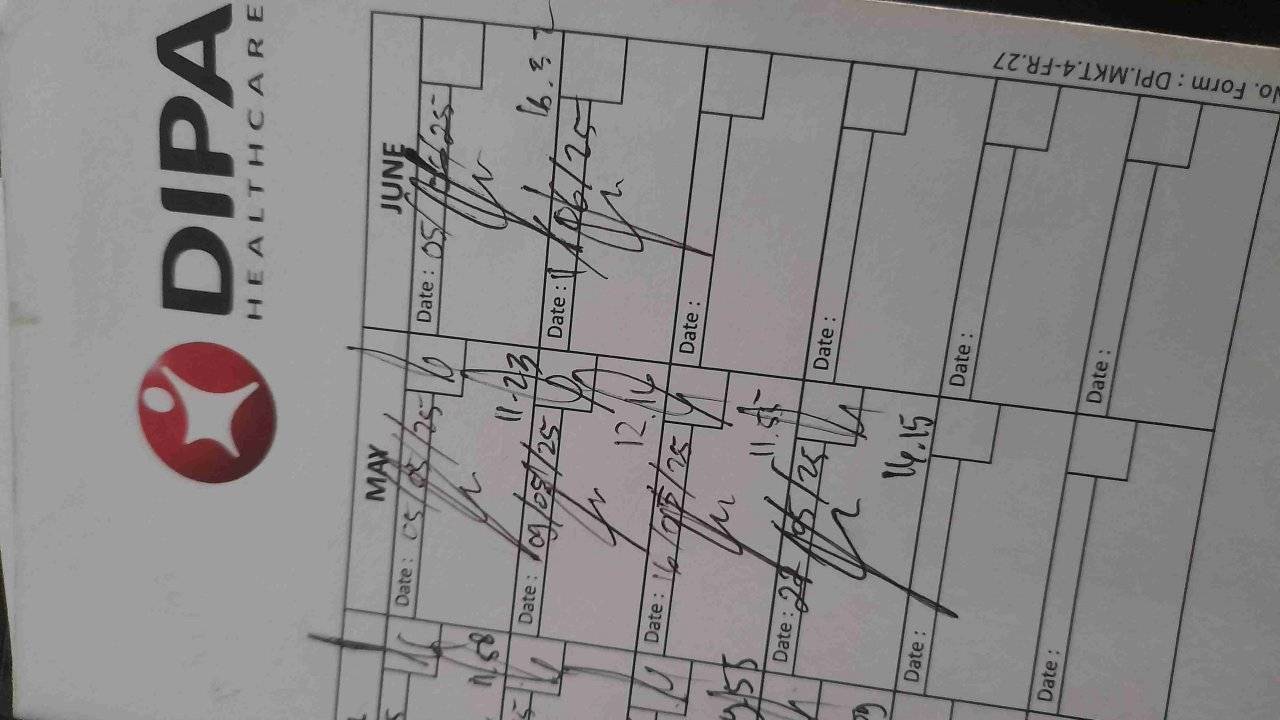 DIPA
HEALTHCARE
No. Form : DPI.MKT.4-FR.27
MAY
JUNE
Date : 05/05/25
11.23
Date : 05/
Date : 09/05/25
12.14
Date : 11/06/25
16.3
Date : 16/05/25
11.55
Date :
Date : 22/05/25
16.15
Date :
Date :
Date :
Date :
Date :
11.58